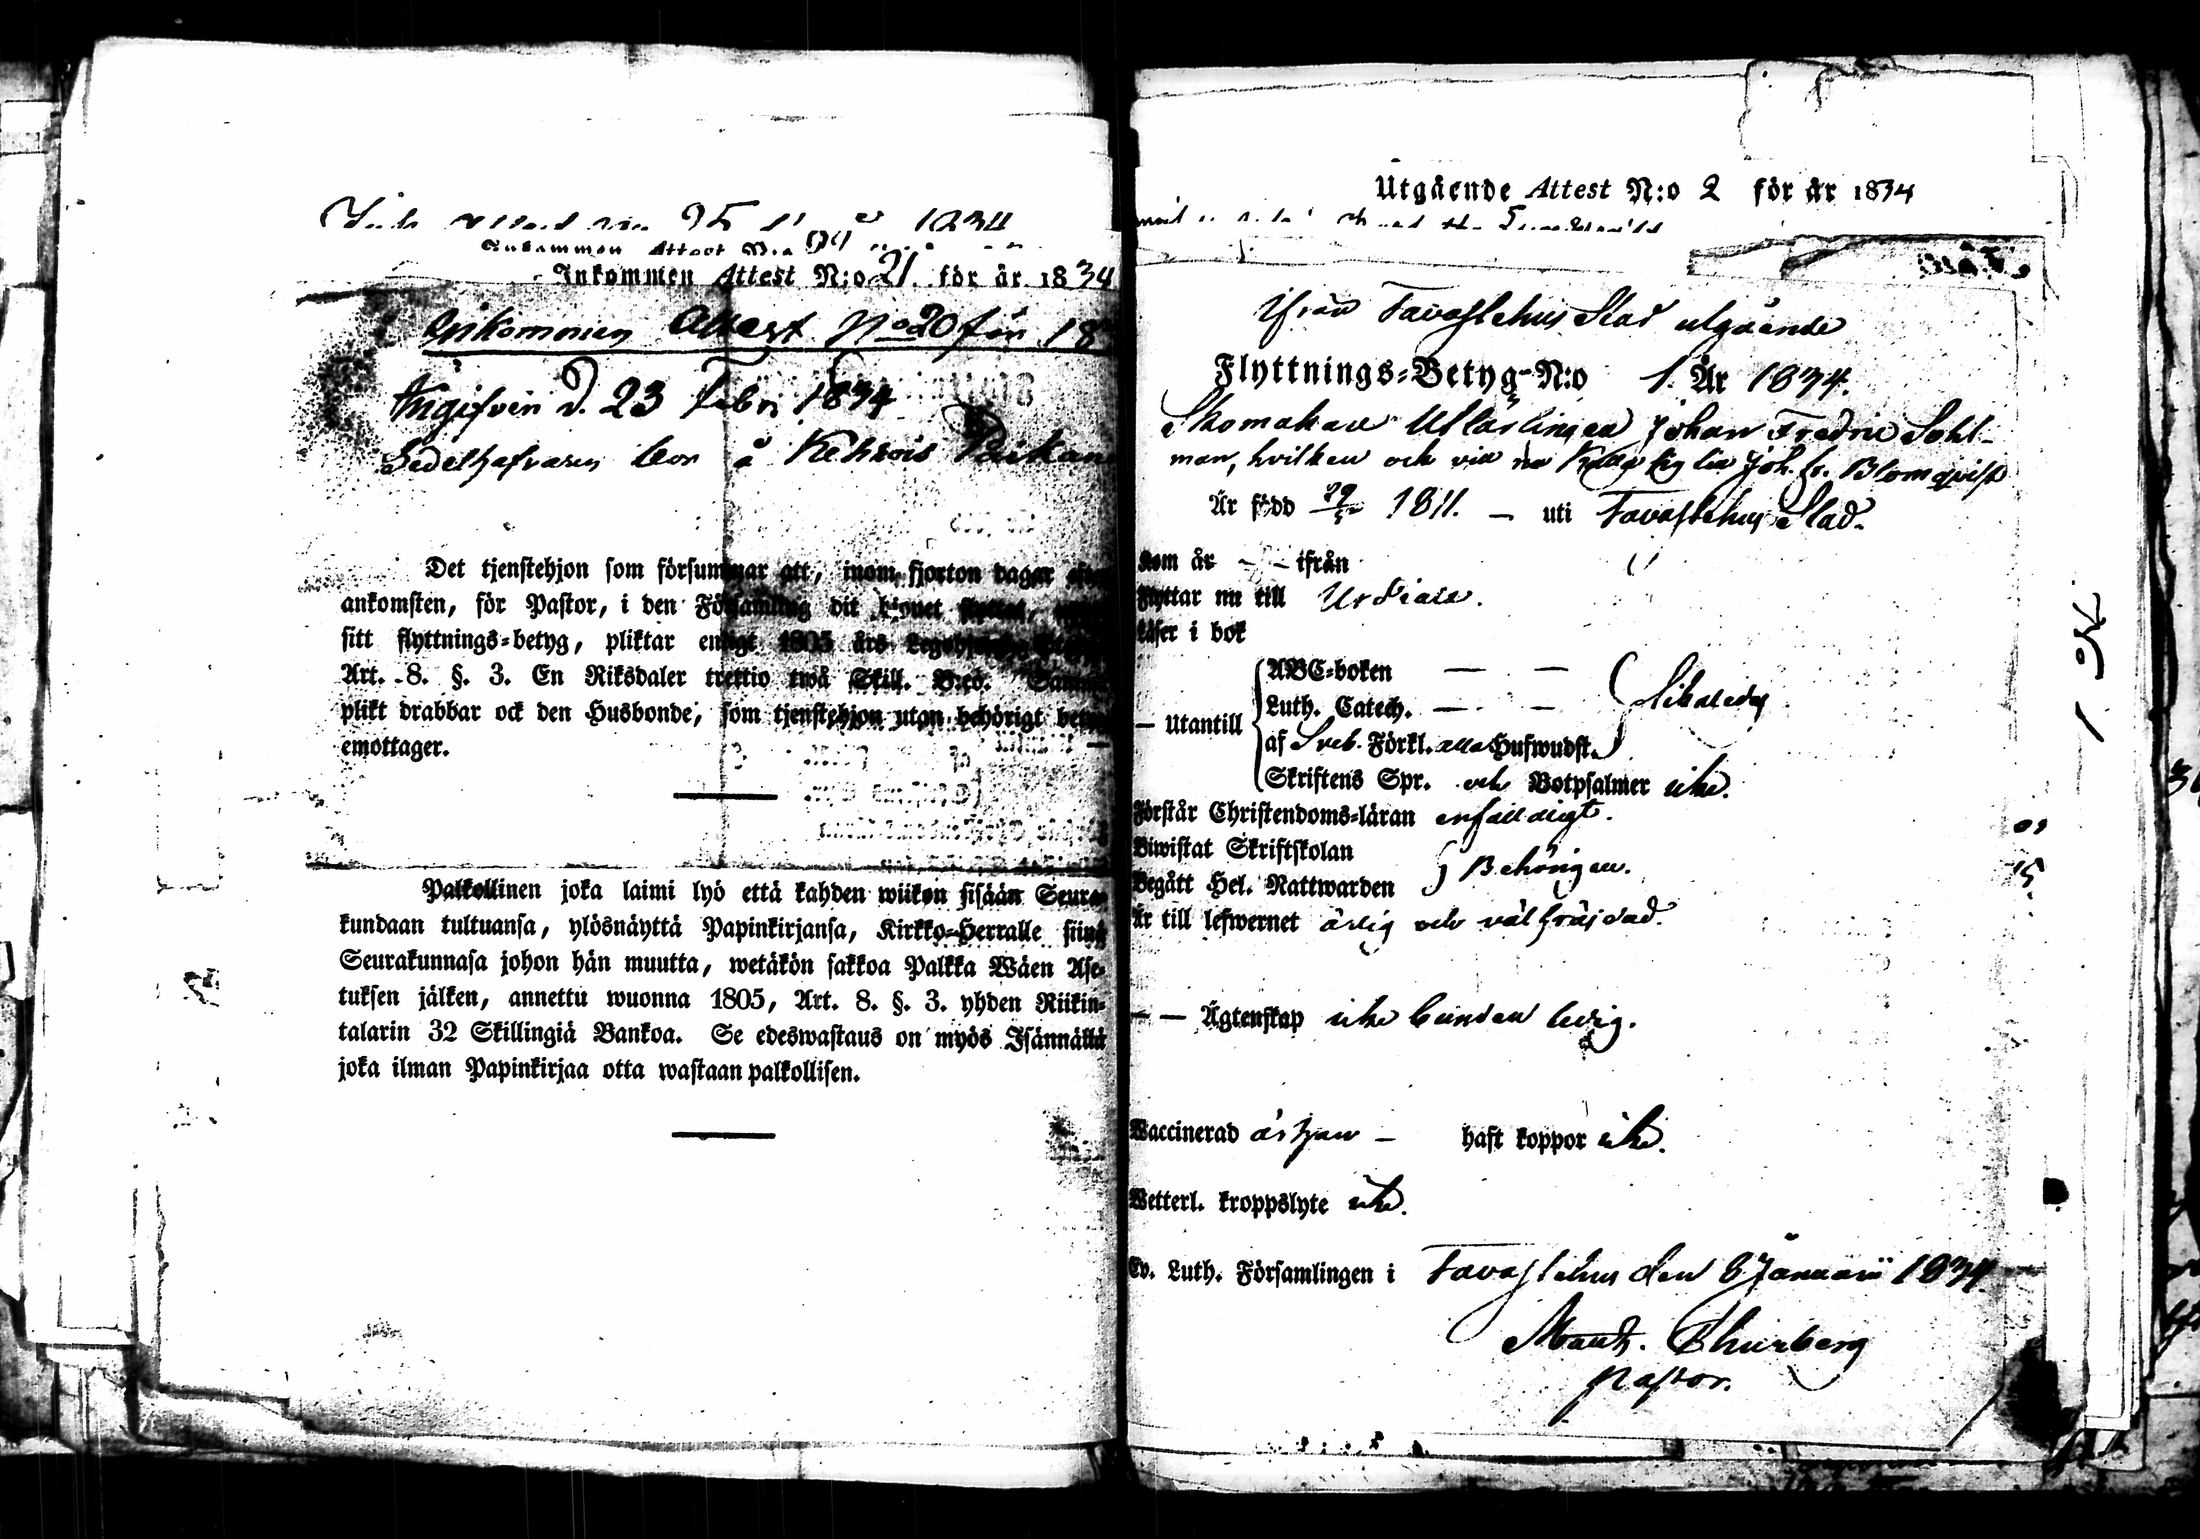 Inkommen Attest N:o 21. för år 1834
Inkommen Attest No 20 för 18
Angifven d. 23 Febr 1834
Sedelhafvaren bor å
Det tjenstehjon som försummar att, inom fjorton dagar efter
ankomsten, för Pastor, i den Församling dit hjonet flyttat,
sitt flyttnings-betyg, pliktar enligt 1805 års
Art. 8. §. 3. En Riksdaler trettio twå Skill. B:co. Samma
plikt drabbar ock den Husbonde, som tjenstehjon utan behörigt betyg
emottager.
Palkollinen joka laimi lyö että kahden wiikon sisään Seura-
kundaan tultuansa, ylösnäyttä Papinkirjansa, Kirkko-Herralle siinä
Seurakunnasa johon hän muutta, wetäkön sakkoa Palkka Wäen Ase-
tuksen jälken, annettu wuonna 1805, Art. 8. §. 3. yhden Riikin-
talarin 32 Skillingiä Bankoa. Se edeswastaus on myös Isännällä
joka ilman Papinkirjaa otta wastaan palkollisen.
Utgående Attest N:o 2 för år 1834
Ifrån Tavastehus Stad utgående
Flyttnings-Betyg N:o 1. År 1834.
Skomakare Utlärlingen Johan Fredric Sohl-
man, hvilken och vill Joh. Fr. Blomqvist
Är född 29 1811. — uti Tavastehus Stad.
Kom år — — ifrån
Flyttar nu till Urdiala.
Läser i bok
— Utantill
ABC-boken — —
Luth. Catech. — —
af Sveb. Förkl. alla Hufwudst.
Skriftens Spr. och Botpsalmer icke.
Förstår Christendoms-läran enfaldigt.
Biwistat Skriftskolan
Begått Hel. Nattwarden } Behörigen.
Är till lefwernet ärlig och välfräjdad.
— — Ägtenskap icke bunden ledig.
Waccinerad är han — haft koppor icke.
Wetterl. kroppslyte icke.
Ev. Luth. Församlingen i Tavastehus den 8 Januarii 1834.
Thurberg
Pastor.